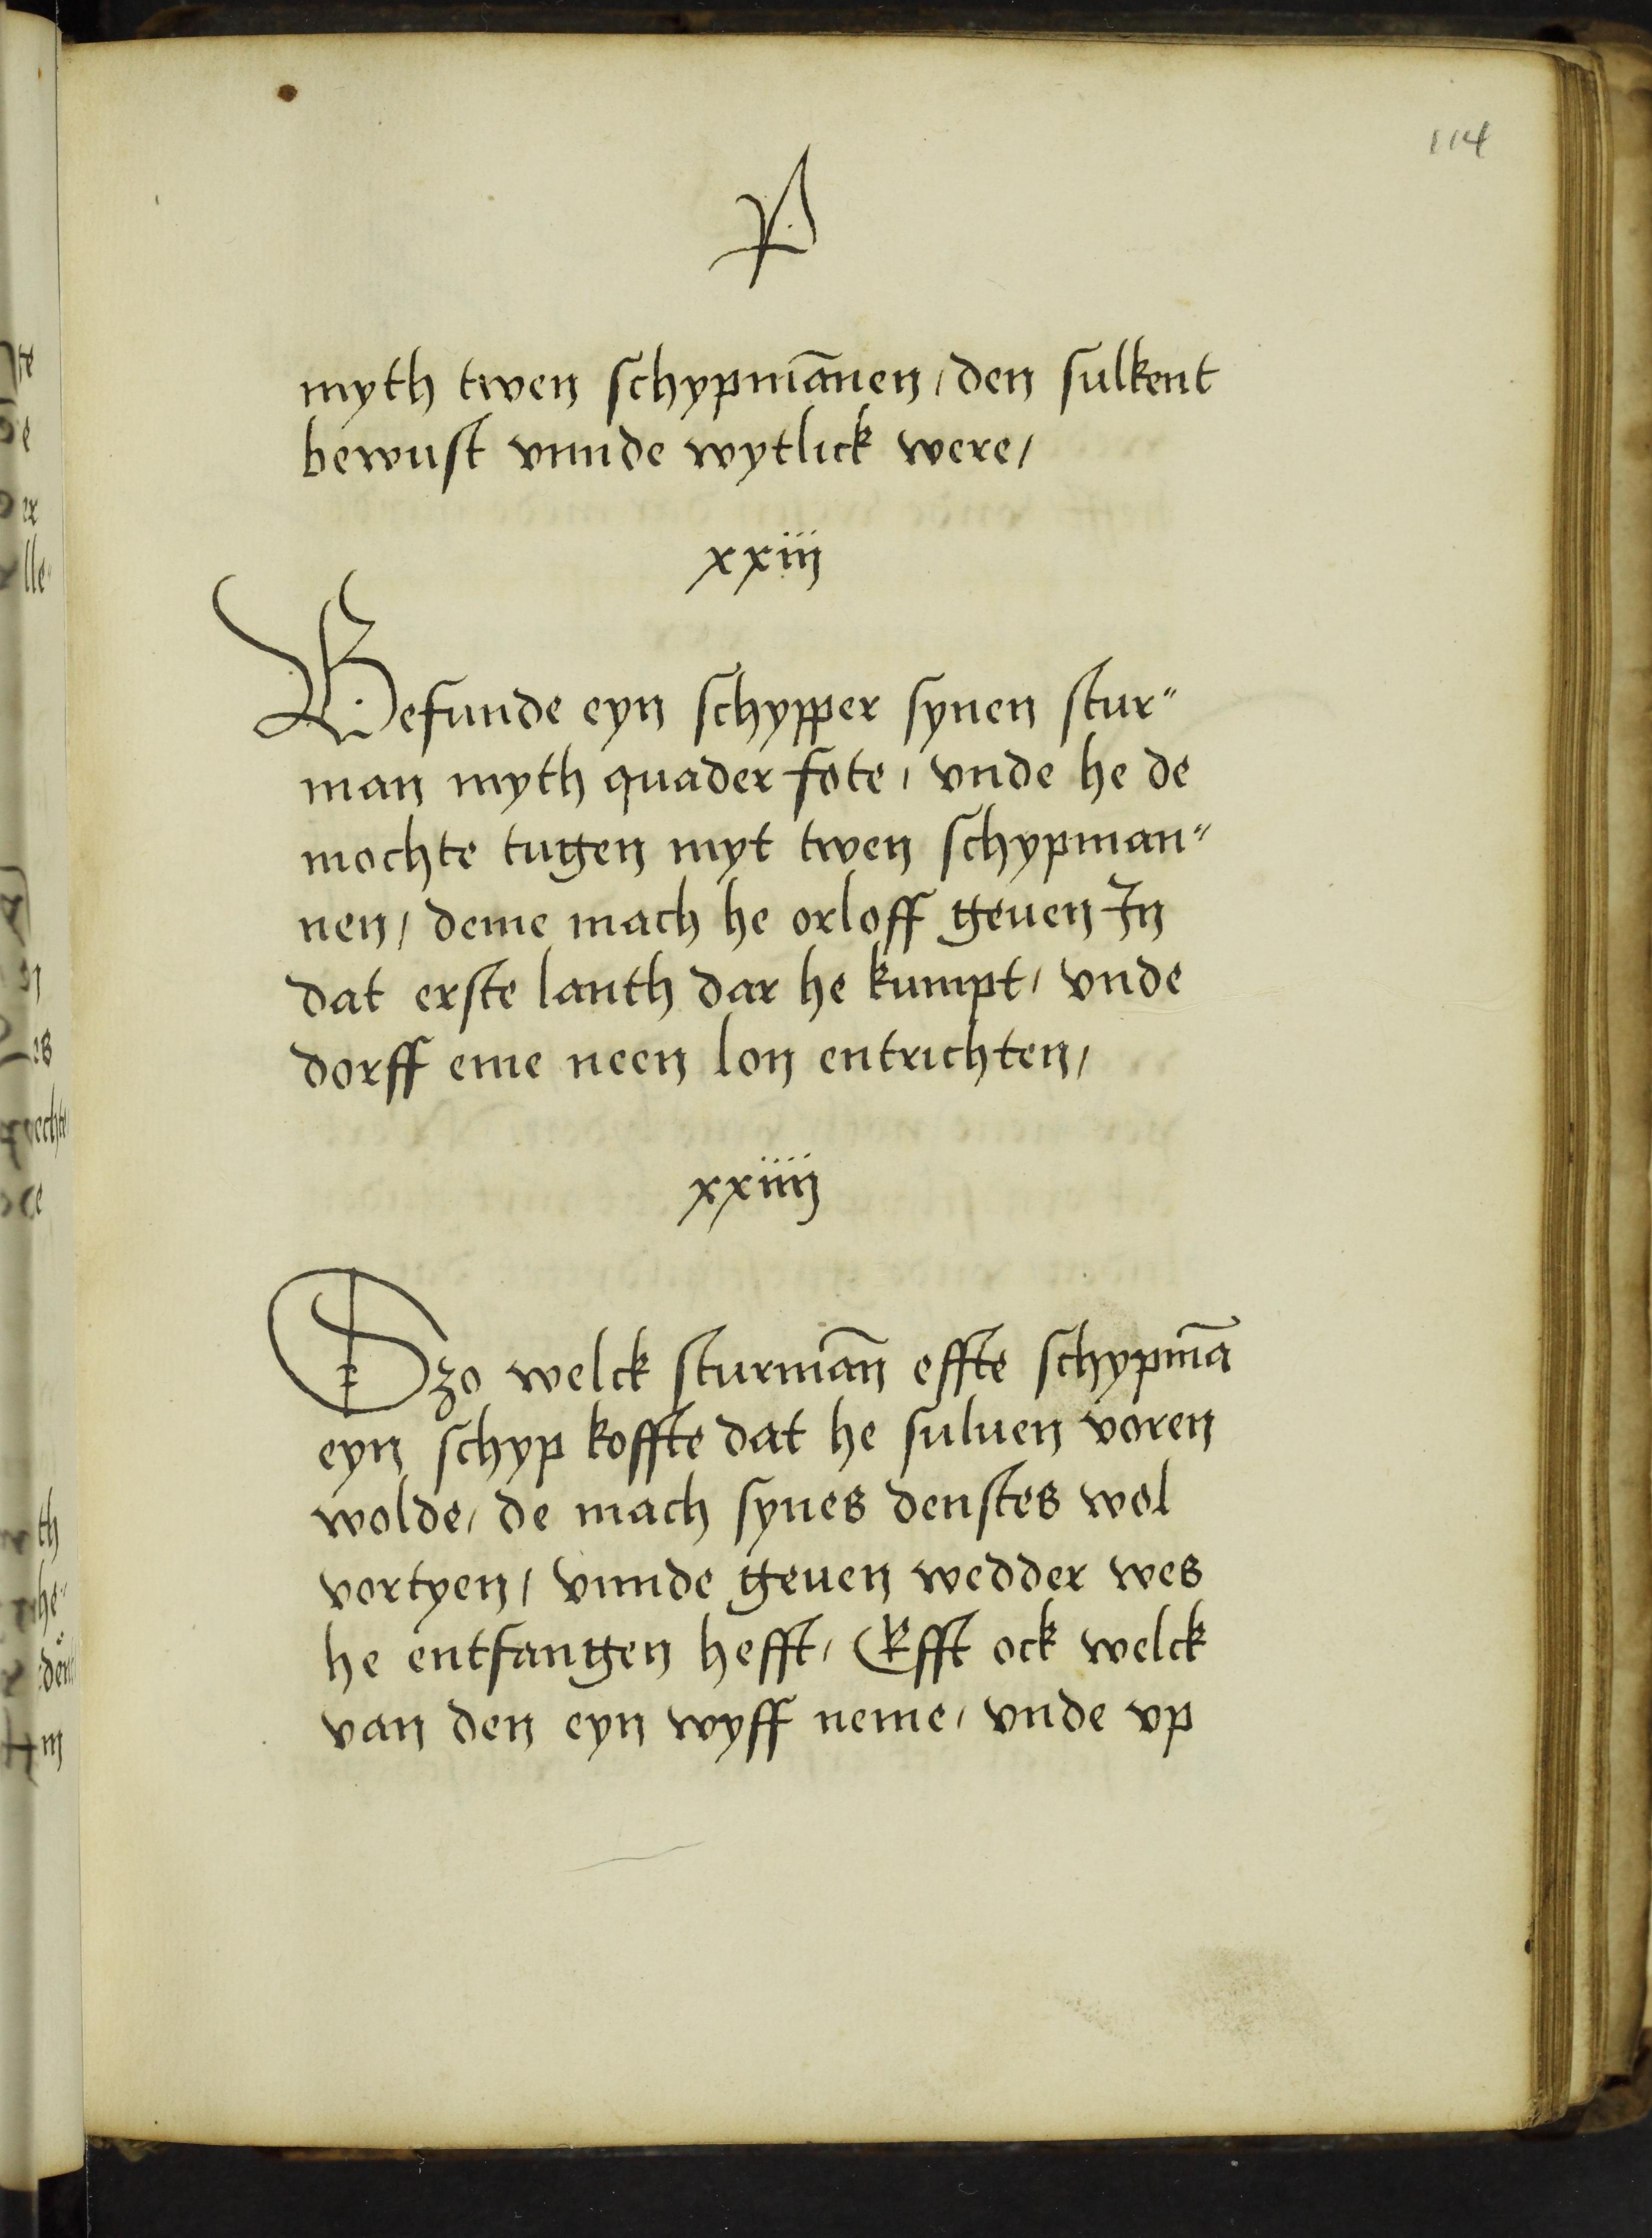 114
P
myth twen schypmānen / den sulkent
bewust vnnde wytlick were /
xxiij
Befunde eyn schypper synen stur"
man myth quader fote / vnde he de
mochte tugen myt twen schypman"
nen / deme mach he orloff geuen In
dat erste lanth dar he kumpt / vnde
dorff eme neen lon entrichten /
xxiiij
Szo welck sturmān effte schypmā
eyn schyp koffte dat he suluen voren
wolde / de mach synes denstes wol
vortyen / vnnde geuen wedder wes
he entfangen hefft / Efft ock welck
van den eyn wyff neme / vnde vp